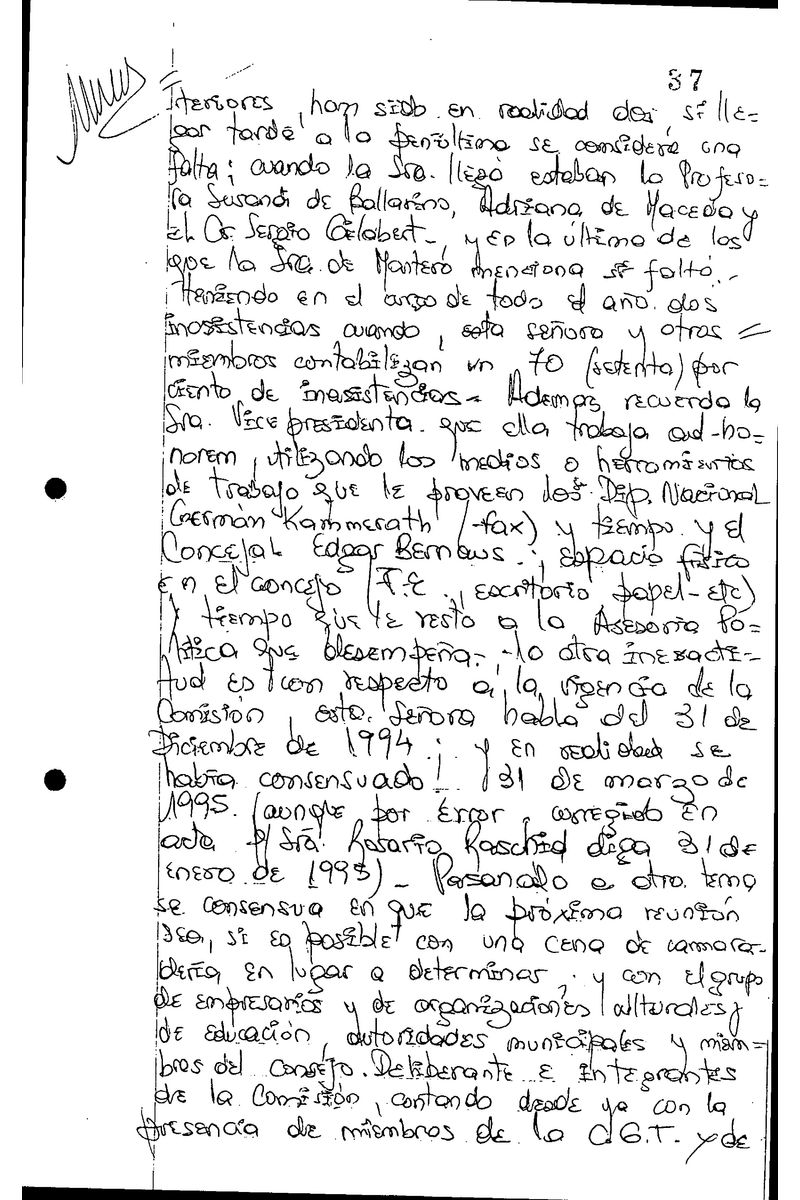 37
teriores, han sido en realidad dos, si lle=
gar tarde a la penúltima se considera una
falta; cuando la Sra. llegó estaban la Profeso-
ra Susana de Ballarino, Adriana de Maceda y
el Cr. Sergio Gelabert-, y en la última de las
que la Sra. de Mantero menciona si faltó.-
Teniendo en el largo de todo el año dos
inasistencias cuando, esta señora y otros =
miembros contabilizan un 70 (setenta) por
ciento de inasistencias- Además recuerda la
Sra. Vice presidenta que ella trabaja ad-ho=
norem, utilizando los medios o herramientas
de trabajo que le proveen los Dip. Nacional
Germán Kammerath (fax) y tiempo y el
Concejal Edgar Bernaus.; espacio físico
en el concejo (T.E., escritorio papel-etc)
y tiempo que le resta a la Asesoría Po=
lítica que desempeña.- lo otra inexacti-
tud es con respecto a la vigencia de la
Comisión, esta Señora habla del 31 de
Diciembre de 1994; y en realidad se
había consensuado! 31 de marzo de
1995. (aunque por error, corregido en
acta p/ Sra. Rosario Raschid diga 31 de
enero de 1995)- Pasando a otro tema
se consensua en que la próxima reunión
sea, si es posible con una cena de camara-
dería en lugar a determinar, y con el grupo
de empresarios y de organizaciones culturales y
de educación, autoridades municipales y miem=
bros del Consejo Deliberante e Integrantes
de la Comisión, contando desde ya con la
presencia de miembros de la C.G.T. y de